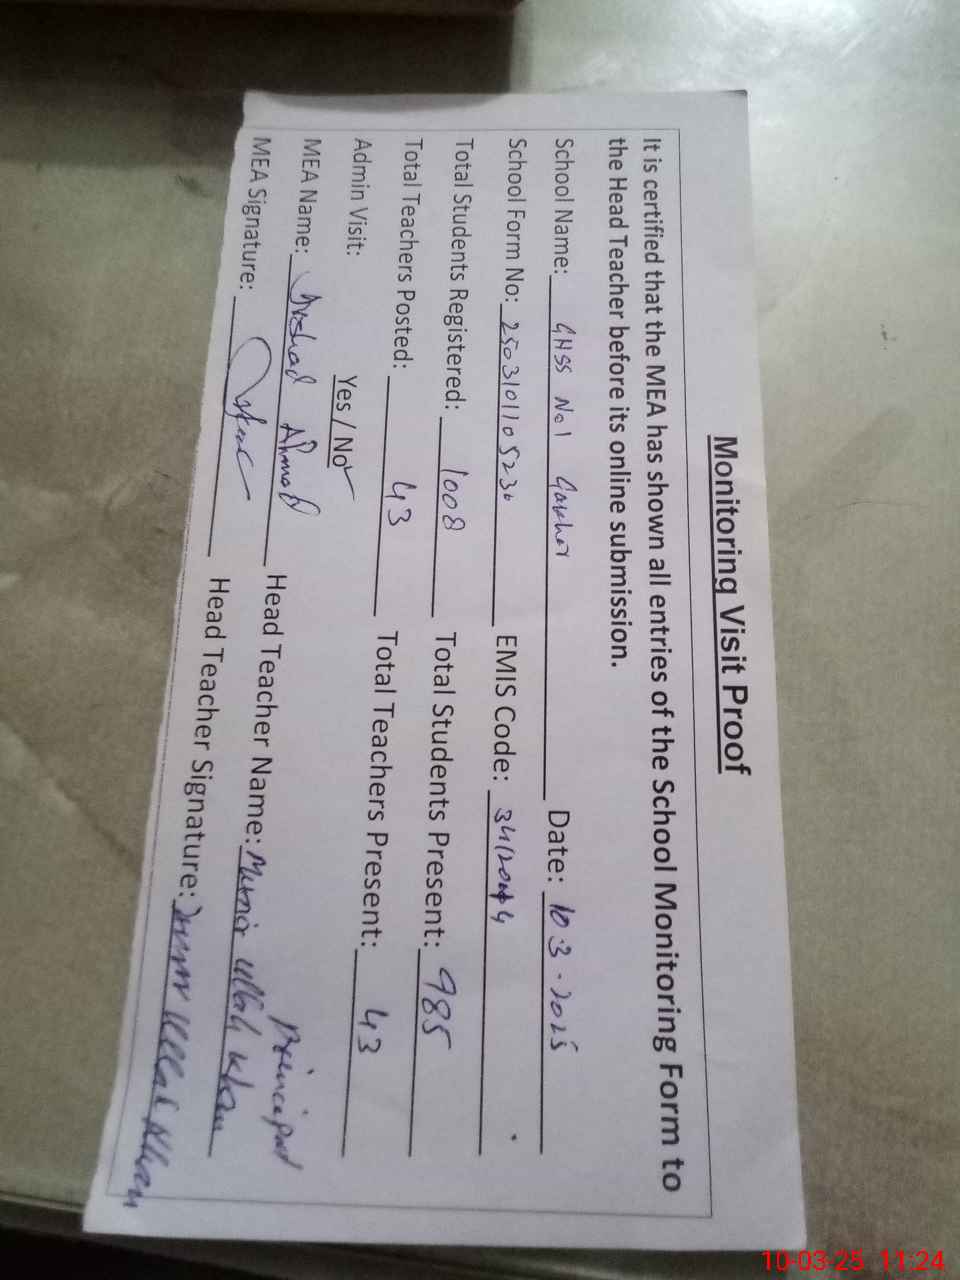 Monitoring Visit Proof
It is certified that the MEA has shown all entries of the School Monitoring Form to
the Head Teacher before its online submission.
School Name: GHSS No 1 Date: 10.3.2025
School Form No: EMIS Code:
Total Students Registered: 1008 Total Students Present: 985
Total Teachers Posted: 43 Total Teachers Present: 43
Admin Visit: Yes / No
Principal
MEA Name: Irshad Ahmad Head Teacher Name: Munir Ullah Khan
MEA Signature: Head Teacher Signature: Munir Ullah Khan
10-03-25 11:24